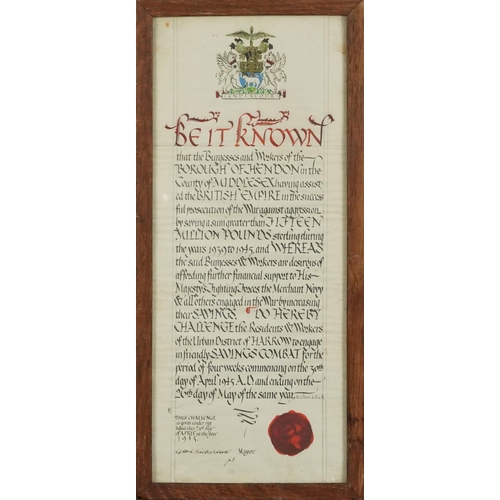 BE IT KNOWN
that the Burgesses and Workers of the
BOROUGH OF HENDON in the
County of MIDDLESEX having assist
ed the BRITISH EMPIRE in the success
ful prosecution of the War against aggression
by saving a sum greater than FIFTEEN
MILLION POUNDS sterling during
the years 1939 to 1945 and WHEREAS
the said Burgesses & Workers are desirous of
affording further financial support to His
Majesty's Fighting Forces the Merchant Navy
& all others engaged in the War by increasing
their SAVINGS DO HEREBY
CHALLENGE the Residents & Workers
of the Urban District of HARROW to engage
in friendly SAVINGS COMBAT for the
period of four weeks commencing on the 30th
day of April 1945 A.D. and ending on the
26th day of May of the same year.
THIS CHALLENGE
is given under my
hand this
of APRIL in the year
1945.
Mayor